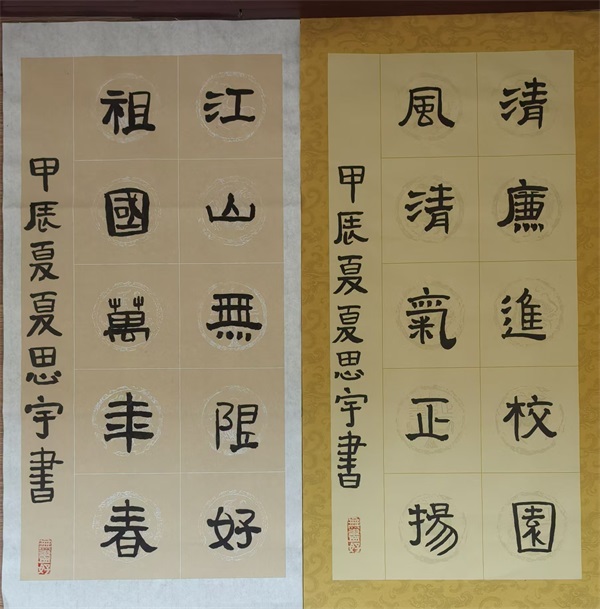 江山無限好
祖國萬年春
甲辰夏夏思宇書
清廉進校園
風清氣正揚
甲辰夏夏思宇書